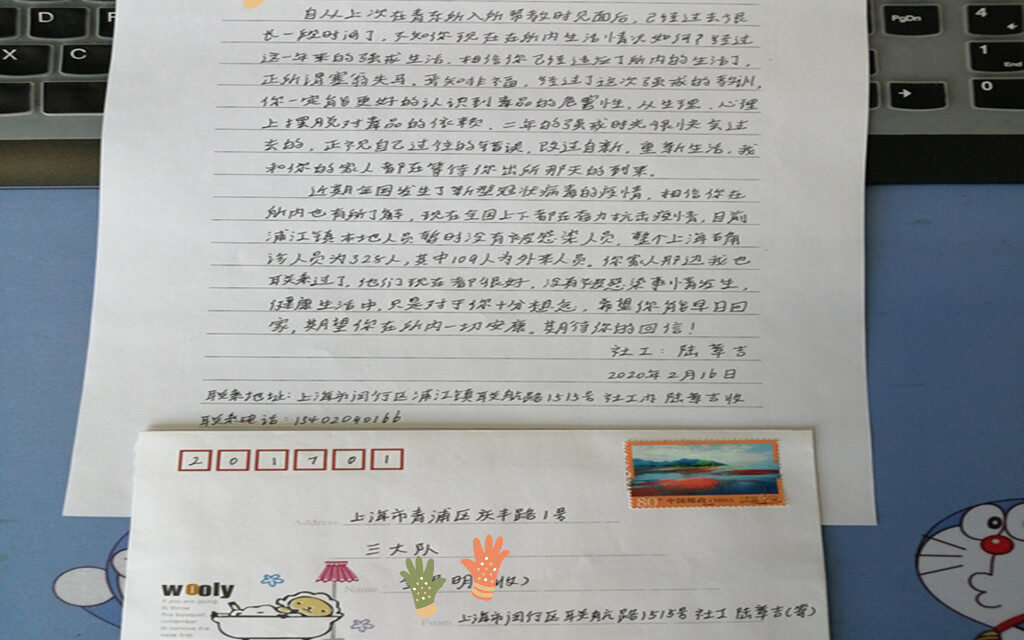 自从上次在青东所入所帮教时见面后，已经过去很
长一段时间了，不知你现在在所内生活情况如何？经过
这一年来的强戒生活，相信你已经适应了所内的生活了，
正所谓塞翁失马，焉知非福，经过了这次强戒的教训，
你一定能更好的认识到毒品的危害性，从生理、心理
上摆脱对毒品的依赖，二年的强戒时光很快会过
去的，正视自己过往的错误，改过自新，重新生活，我
和你的家人都在等待你出所那天的到来。
近期全国发生了新型冠状病毒的疫情，相信你在
所内也有所了解，现在全国上下都在奋力抗击疫情，目前
浦江镇本地人员暂时没有被感染人员，整个上海确
诊人员为328人，其中109人为外来人员。你家人那边我也
联系过了，他们现在都很好，没有被感染事情发生，
健康生活中，只是对于你十分想念，希望你能早日回
家，期望你在所内一切安康，期待你的回信！
社工：陆草吉
2020年2月16日
联系地址：上海市闵行区浦江镇联航路1515号 社工办 陆草吉收
联系电话：13402040166
201701
80分 中国邮政 CHINA
Address 上海市青浦区 路1号
三大队
Name 明 收）
From 上海市闵行区联航路1515号 社工 陆草吉(寄)
wooly
If you are going
to know
the bouquet,
remember
to remove the
nose first
PgDn
4
1
End
0
D
X
C